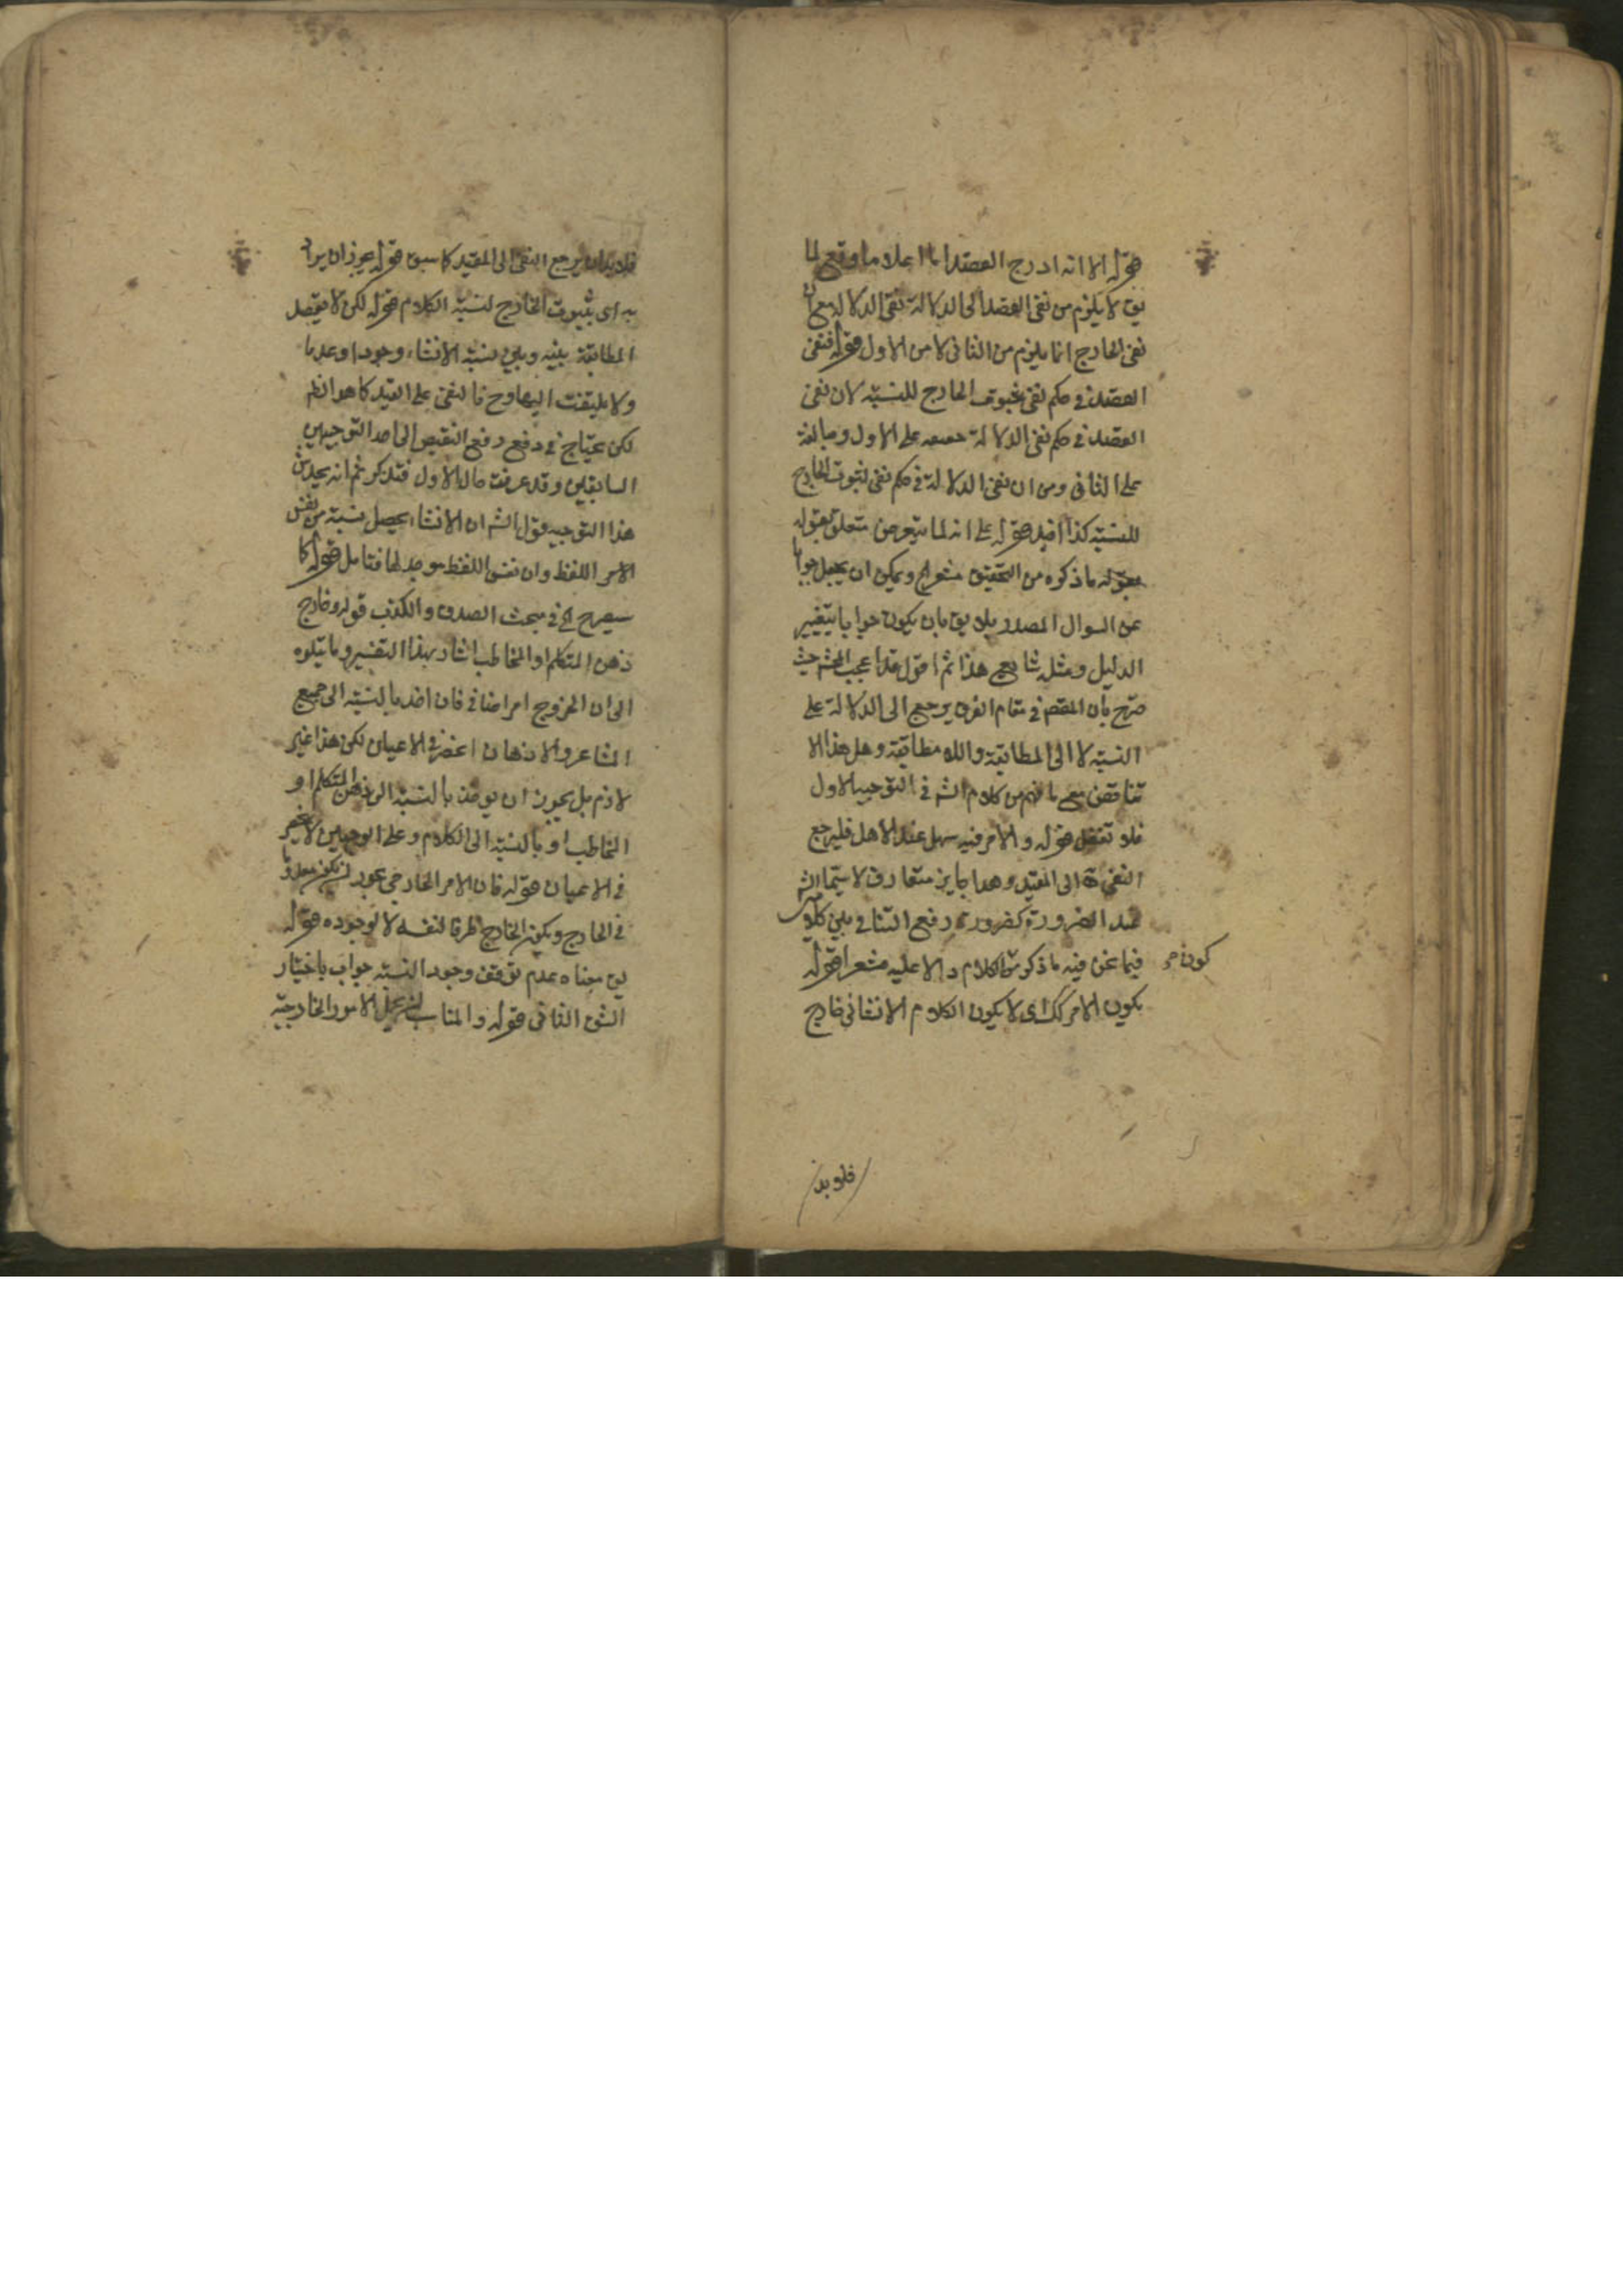 قوله الا انه ادرج القصد اعلاما وقع لما
يق لا يلزم من نفى القصد الى الدلالة نفى الدلالة مع ان
نفى الخارج انما يلزم من الثانى لا من الاول قوله فنفى
القصد فى حكم نفى ثبوت الخارج للنسبة لان نفى
القصد فى حكم نفى الدلالة على الاول ومبالغة
على الثانى ومن ان نفى الدلالة فى حكم نفى ثبوت الخارج
للنسبة كذا افيد قوله على انه لما يتعرض متعلق بقوله
بقوله ما ذكره من التحقيق مشعر الخ ويمكن ان يجعل جوابا
عن السوال المصدر بلا يق بان يكون جوابا بتغيير
الدليل ومثله شايع هذا ثم اقول قد اعجب المحشى حيث
صرح بان المقصد فى مقام الفرق يرجع الى الدلالة على
النسبة لا الى المطابقة واللا مطابقة وهل هذا الا
تناقض مع ما فهم من كلام الش فى التوجيه الاول
فلا تغفل قوله والامر فيه سهل عند الاهل فليرجع
النفى الى المقيد وهذا جايز متعارف لا سيما
عند الضرورة كضرورة رفع التنافى بين كلامى الش
فيما نحن فيه ما ذكر من الكلام دالا عليه مشعرا قوله
كون
يكون الامر كك اى لا يكون الكلام الانشائى خارج
فلا بد
فلا بد ان يرجع النفى الى المقيد كما سبق قوله يجوز ان يراد
به اى بثبوت الخارج لنسبة الكلام قوله لكن لا يقصد
المطابقة بينه وبين نسبة الانشاء وجودا وعدما
ولا يلتفت اليها وح فالنفى على القيد كما هو الظم
لكن يحتاج فى دفع رفع النقيض الى احد التوجيهين
السابقين وقد عرفت حال الاول فتذكر ثم انه يخدش
هذا التوجيه قول الش ان الانشاء يحصل نسبة من نفس
الامر اللفظ وان نفس اللفظ موجد لها فتامل قوله كما
سيصرح الخ فى مبحث الصدق والكذب قوله وخارج
ذهن المتكلم او المخاطب اشار بهذا التفسير وما يتلوه
الى ان الخروج امر اضافى فان اخذ بالنسبة الى جميع
المشاعر والاذهان انحصر فى الاعيان لكن هذا غير
لازم بل يجوز ان يوخذ بالنسبة الى ذهن المتكلم او
المخاطب او بالنسبة الى الكلام وعلى الوجهين لا ينحصر
فى الاعيان قوله فان الامر الخارجى يجوز ان يكون معدوما
فى الخارج ويكون الخارج ظرفا لنفسه لا لوجوده قوله
يق معناه عدم توقف وجود النسبة جواب باختيار
الشق الثانى قوله والمناسب ان يجعل الامور الخارجية